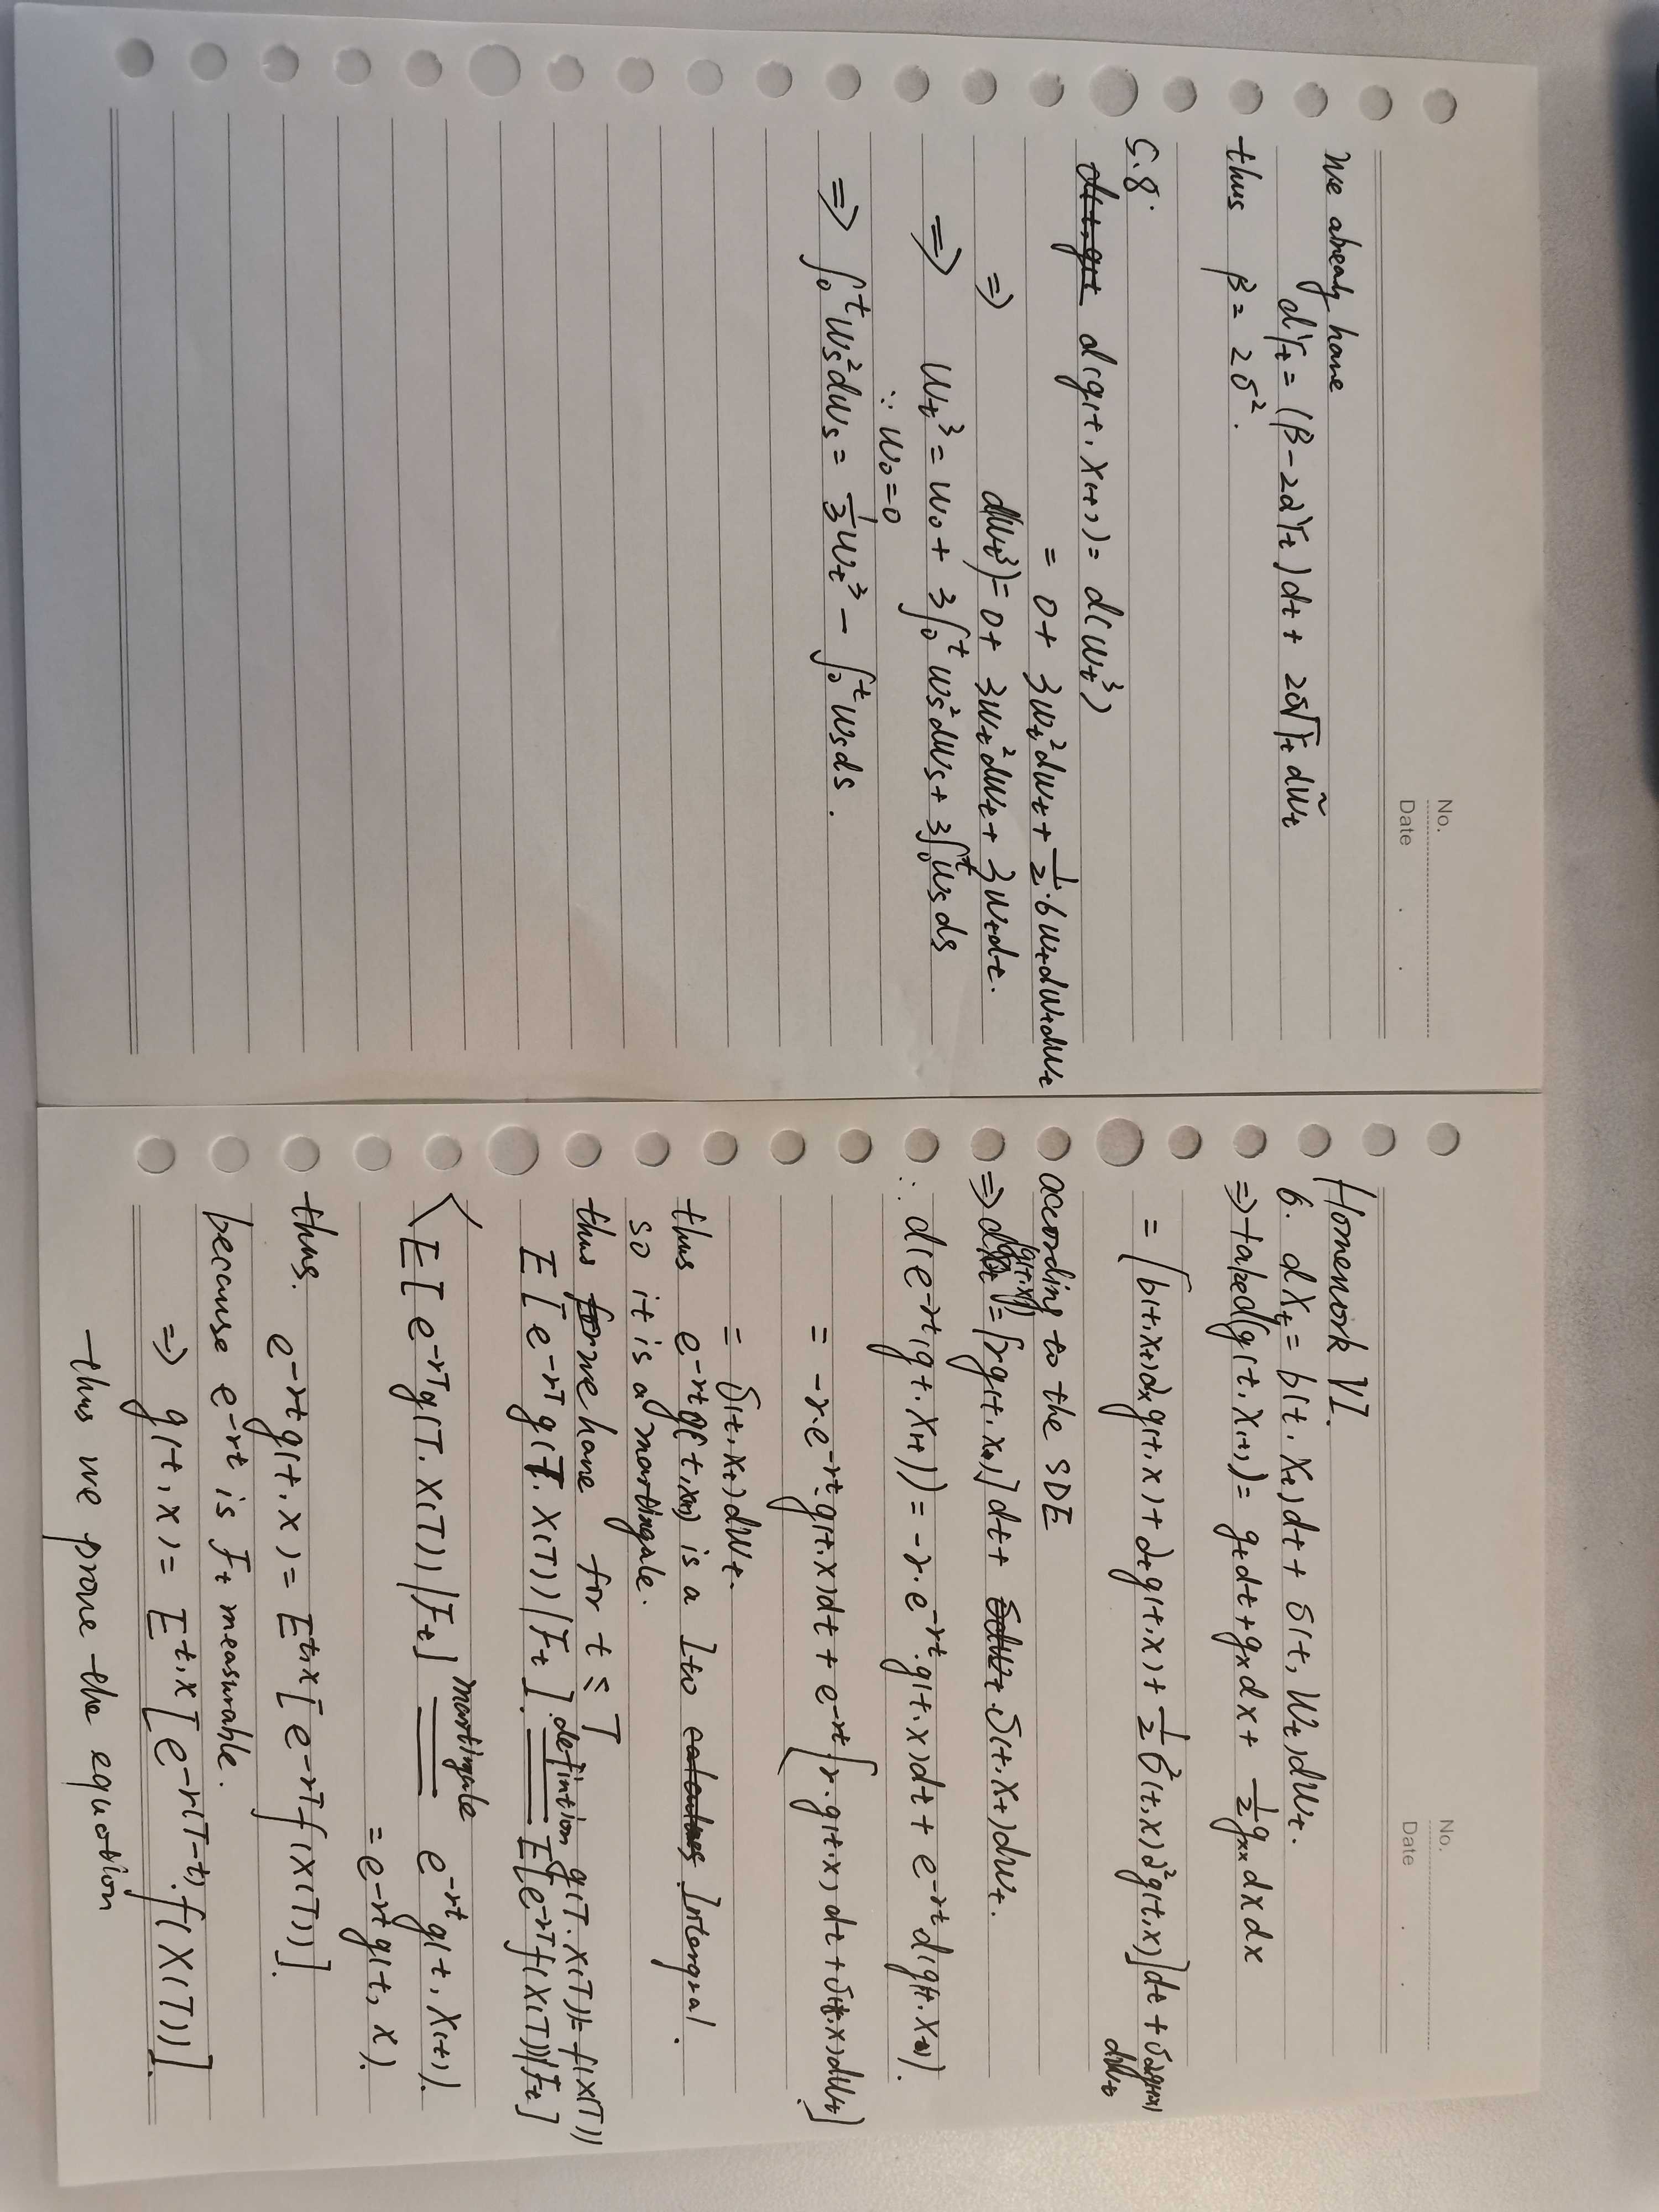 No.
Date . .
We already have
dYt = (β-2αYt)dt + 2σ√Yt dW̃t
thus β = 2σ².
5.8.
d(t, g(t d(g(t, X(t)) = d(Wt³)
= 0 + 3Wt²dWt + 1/2 · 6WtdWtdWt
⇒ d(Wt³) = 0 + 3Wt²dWt + 3Wtdt.
⇒ Wt³ = W0 + 3∫₀ᵗ Ws²dWs + 3∫₀ᵗ Ws ds
∵ W0 = 0
⇒ ∫₀ᵗ Ws²dWs = 1/3 Wt³ - ∫₀ᵗ Wsds.
No.
Date . .
Homework VI.
6. dXt = b(t, Xt)dt + σ(t, Wt)dWt.
⇒ take d(g(t, X(t)) = gtdt + gxdx + 1/2 gxx dxdx
= [b(t,Xt)∂x g(t,x) + ∂t g(t,x) + 1/2 σ²(t,x)∂²g(t,x)]dt + σ∂xg(t,x)
dWt
according to the SDE
⇒ d(g(t,x)) = [rg(t,x)]dt + σdWt. σ(t,Xt)dWt.
∴ d(e^-rt(gt, X(t)) = -r·e^-rt·g(t,x)dt + e^-rt d(g(t,X(t)).
= -r·e^-rt·g(t,x)dt + e^-rt [r·g(t,x)dt + σ(t,x)dWt].
= σ(t,Xt)dWt.
thus e^-rt g(t,X(t)) is a Ito calculus Intergral.
so it is a martingale.
thus for we have for t ≤ T
defintion g(T, X(T)) = f(X(T))
E[e^-rT g(T, X(T))|Ft]. = E[e^-rT f(X(T))|Ft]
martingale
E[e^-rT g(T, X(T))|Ft] = e^-rt g(t, X(t)).
= e^-rt g(t, x).
thus. e^-rt g(t,x) = E^t,x[e^-rT f(X(T))].
because e^-rt is Ft measurable.
⇒ g(t,x) = E^t,x[e^-r(T-t)·f(X(T))].
thus we prove the equation